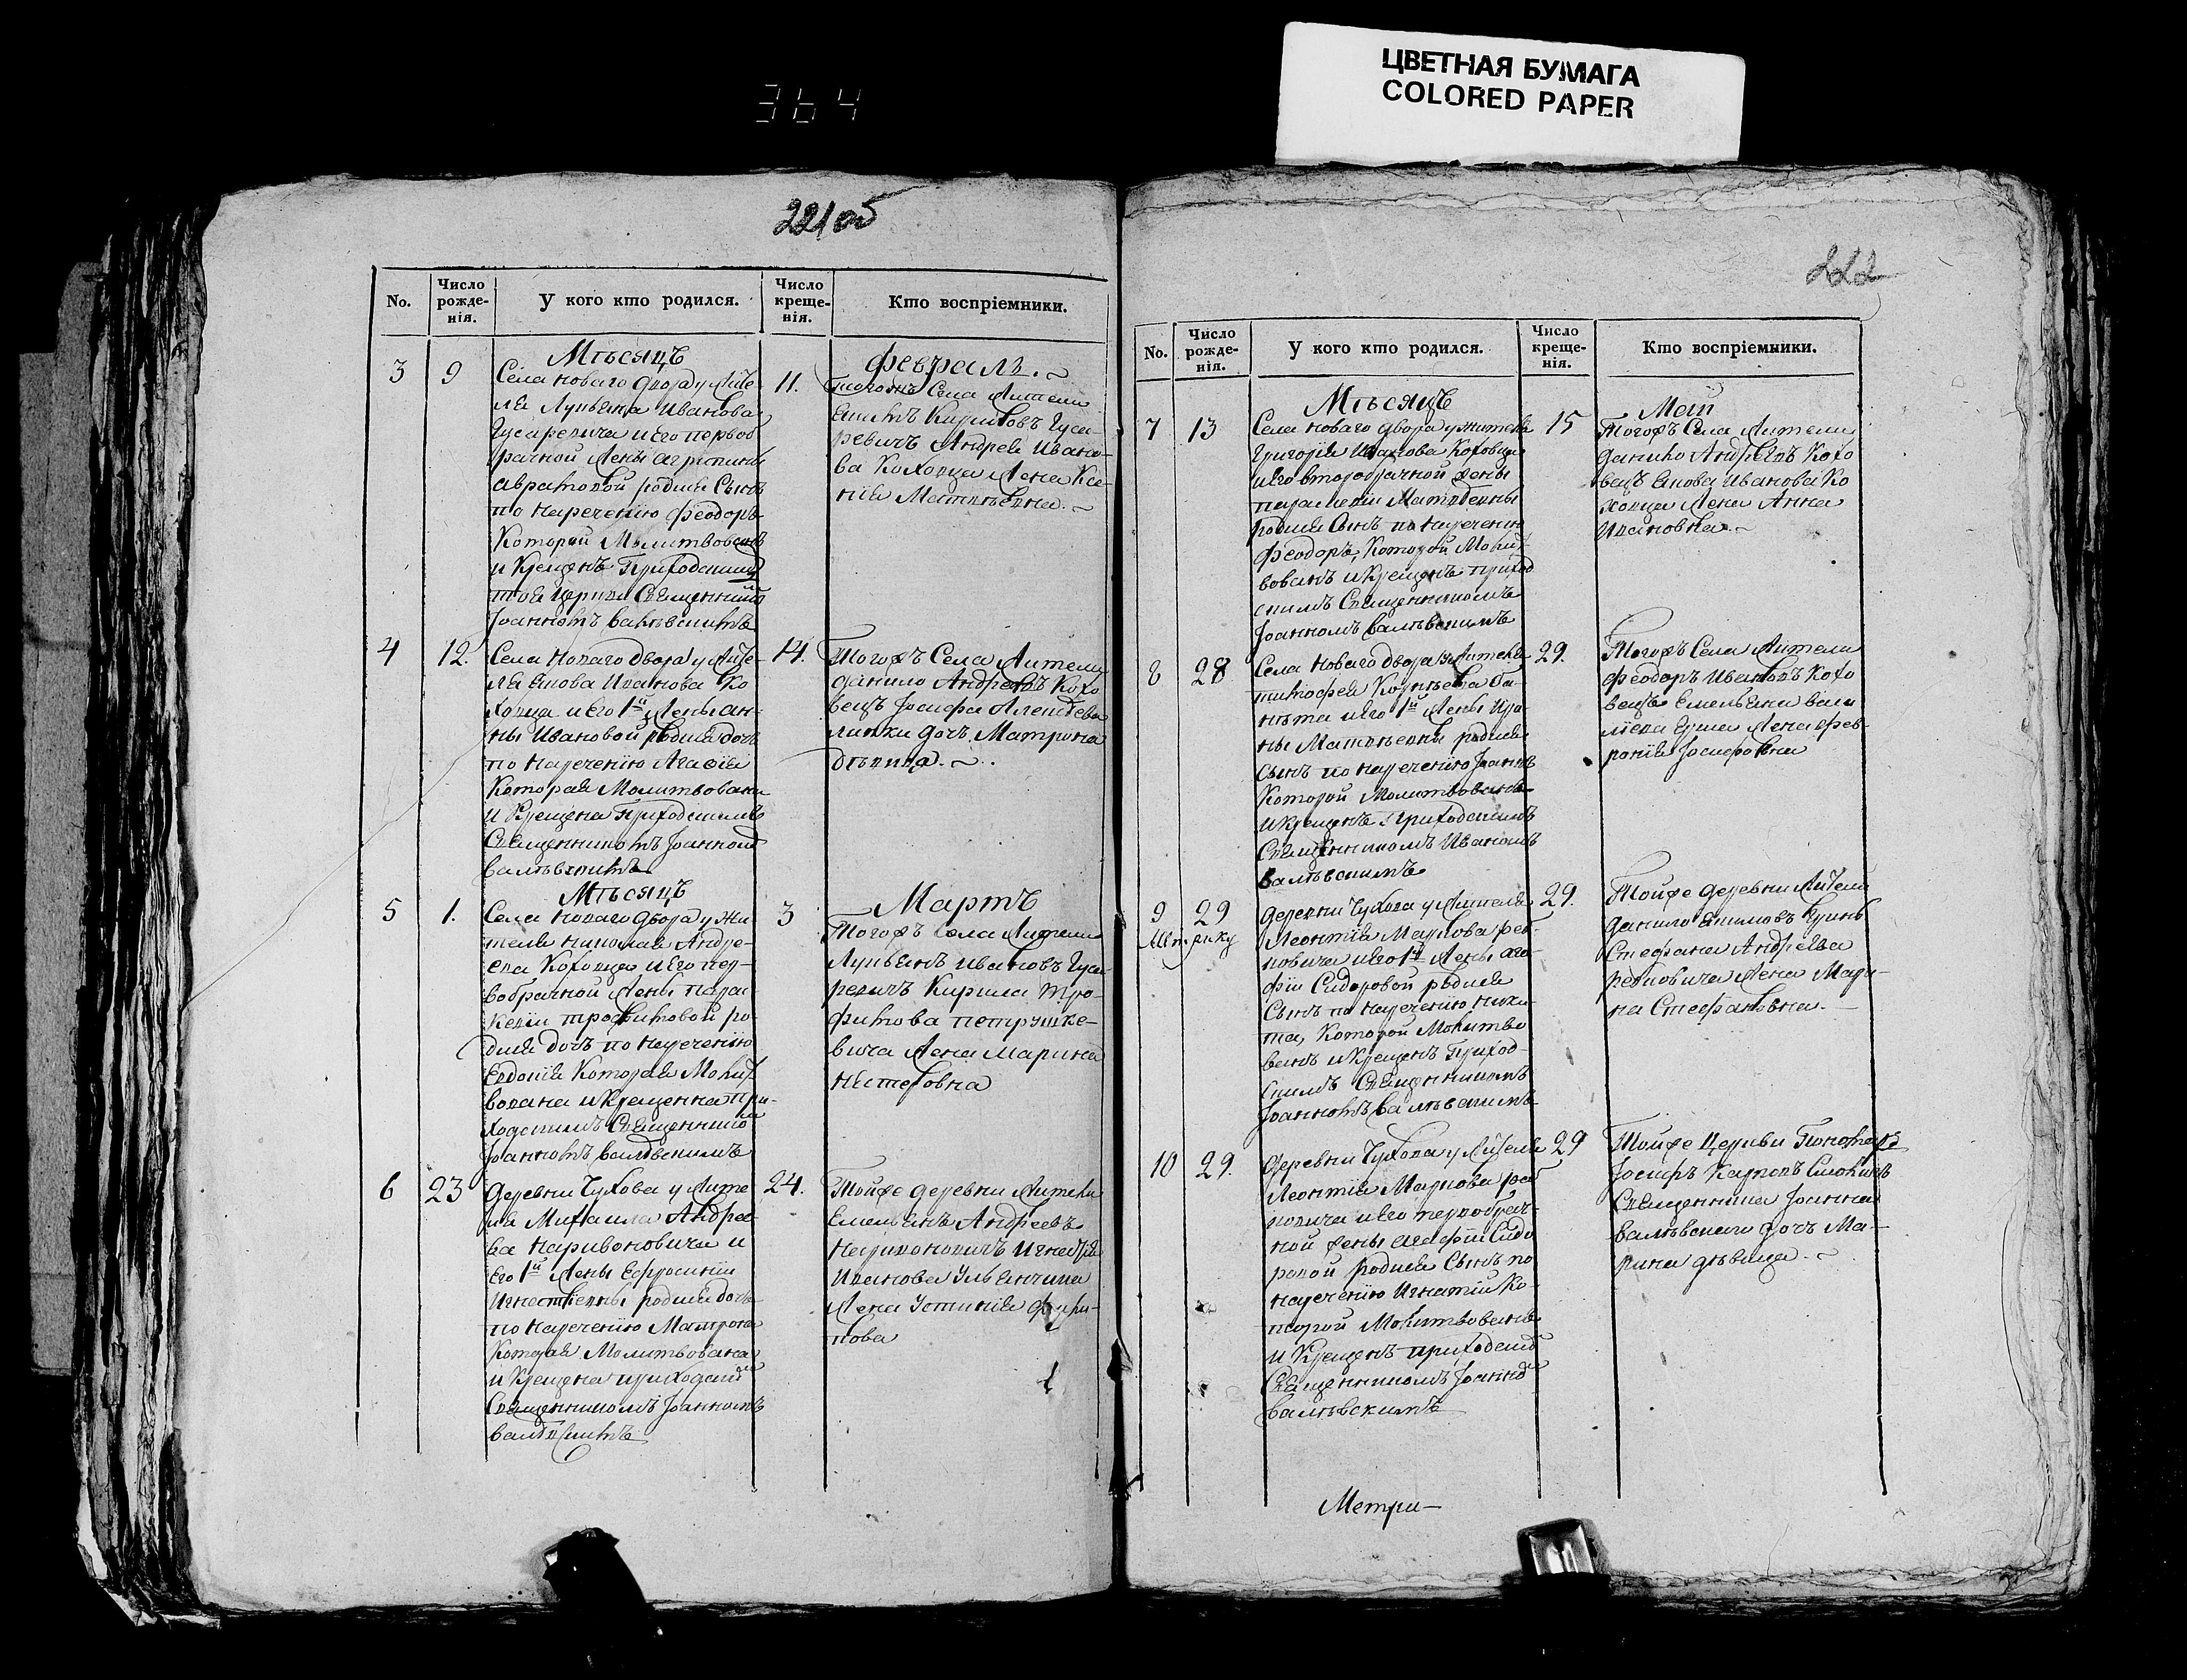 ЦВЕТНАЯ БУМАГА
COLORED PAPER
364
221об
No.
Число рожденія.
У кого кто родился.
Число крещенія.
Кто воспріемники.
Мѣсяцъ
Февраль.
3 9 11.
Села Новаго Двора у жите-
ля Лукьяна Иванова
Гусаревича и его перво
брачной жены Агрипины
родися Сынъ
по наречению Феодоръ
Которой Молитвованъ
и Крещенъ Приходскимъ
тоя Церкви Священникомъ
Іоанномъ
Тогожъ Села жители
Кириловъ Гуса-
ревичъ Андрея Ивано-
ва Коховца жена Ксе-
нія Матвѣевна.
4 12. 14.
Села Новаго Двора у жите-
ля Якова Иванова Ко
ховца и его 1й жены Ан-
ны Ивановой родися дочь
по наречению Агафія
Которая Молитвована
и Крещена Приходскимъ
Священникомъ Іоанномъ
Тогожъ Села жители
Данило Андреевъ Кохо
вецъ Іосифа Алексѣева
дочь Матрона
дѣвица.
Мѣсяцъ
Мартъ
5 1. 3
Села Новаго Двора у жи-
теля Николая Андре-
ева Коховца и его пер-
вобрачной жены Парас-
кевіи Трофимовой ро-
дися дочь по наречению
Евдокія Которая Молит
вована и Крещенна При-
ходскимъ Священникомъ
Іоанномъ
Тогожъ села жители
Лукьянъ Ивановъ Гуса-
ревичъ Кирила Тро-
фимова Петрушке-
вича жена Марина
Нестеровна
6 23 24.
Деревни Чухова у жите
ля Михаила Андрее-
ва Каривоновича и
его 1й жены Ефросиніи
Игнатьевны родися дочь
по наречению Матрона
Которая Молитвована
и Крещена приходскимъ
Священникомъ Іоанномъ
Тойже деревни жители
Емельянъ Андреевъ
Игнатія
Иванова Ульянчика
жена Устинія
222
No.
Число рожденія.
У кого кто родился.
Число крещенія.
Кто воспріемники.
Мѣсяцъ
Май
7 13 15
Села Новаго Двора у жителя
Григорія Иванова Коховца
и его второбрачной жены
Параскевіи Матвѣевны
родися Сынъ по наречению
Феодоръ, Которой Молит
вованъ и Крещенъ приход
скимъ Священникомъ
Іоанномъ
Тогожъ Села жители
Данило Андреевъ Кохо
вецъ Якова Иванова Ко
ховца жена Анна
Ивановна.
8 28 29.
Села Новаго Двора у жителя
Тимофея
и его 1й жены Ири-
ны Матвѣевны родися
Сынъ по наречению Іоаннъ
Которой Молитвованъ
и Крещенъ Приходскимъ
Священникомъ Иваномъ
Тогожъ Села жители
Феодоръ Ивановъ Кохо
вецъ Емельяна Васи
жена Фев-
ронія Іосифовна
9 29 29.
Метрику
Деревни Чухова у жителя
Леонтія Маркова Рев-
ковича и его 1й жены Ага-
фіи Сидоровой родися
Сынъ по наречению Ники-
та, Которой Молитво
ванъ и Крещенъ Приход-
скимъ Священникомъ
Іоанномъ
Тойже деревни жители
Данило
Стефана Андреева
жена Мари-
на Стефановна.
10 29. 29
Деревни Чухова у жителя
Леонтія Маркова Рев
ковича и его первобрач-
ной жены Агафіи Сидо
ровой родися Сынъ по
наречению Игнатій Ко-
торой Молитвованъ
и Крещенъ приходскимъ
Священникомъ Іоанномъ
Тойже Церкви Пономарь
Іосифъ Карповъ
Священника Іоанна
дочь Ма-
рина дѣвица.
Метри-